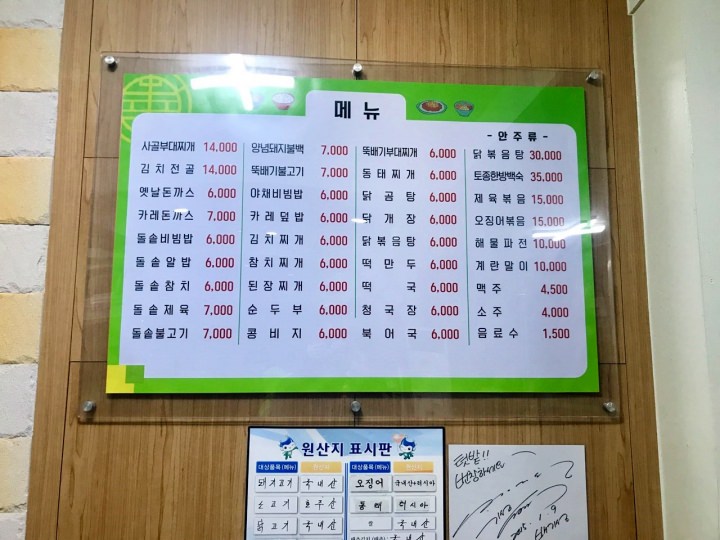 메뉴
사골부대찌개 14.000
김치전골 14.000
옛날돈까스 6.000
카레돈까스 7.000
돌솥비빔밥 6.000
돌솥알밥 6.000
돌솥참치 6.000
돌솥제육 7.000
돌솥불고기 7.000
양념돼지불백 7.000
뚝배기불고기 7.000
야채비빔밥 6.000
카레덮밥 6.000
김치찌개 6.000
참치찌개 6.000
된장찌개 6.000
순두부 6.000
콩비지 6.000
뚝배기부대찌개 6.000
동태찌개 6.000
닭곰탕 6.000
닭개장 6.000
닭볶음탕 6.000
떡만두 6.000
떡국 6.000
청국장 6.000
북어국 6.000
- 안주류 -
닭볶음탕 30.000
토종한방백숙 35.000
제육볶음 15.000
오징어볶음 15.000
해물파전 10.000
계란말이 10.000
맥주 4.500
소주 4.000
음료수 1.500
원산지 표시판
대상품목(메뉴) 원산지 대상품목(메뉴) 원산지
돼지고기 국내산 오징어 국내산+러시아
소고기 호주산 동태 러시아
닭고기 국내산 국내산
텃밭!!
번창하세요